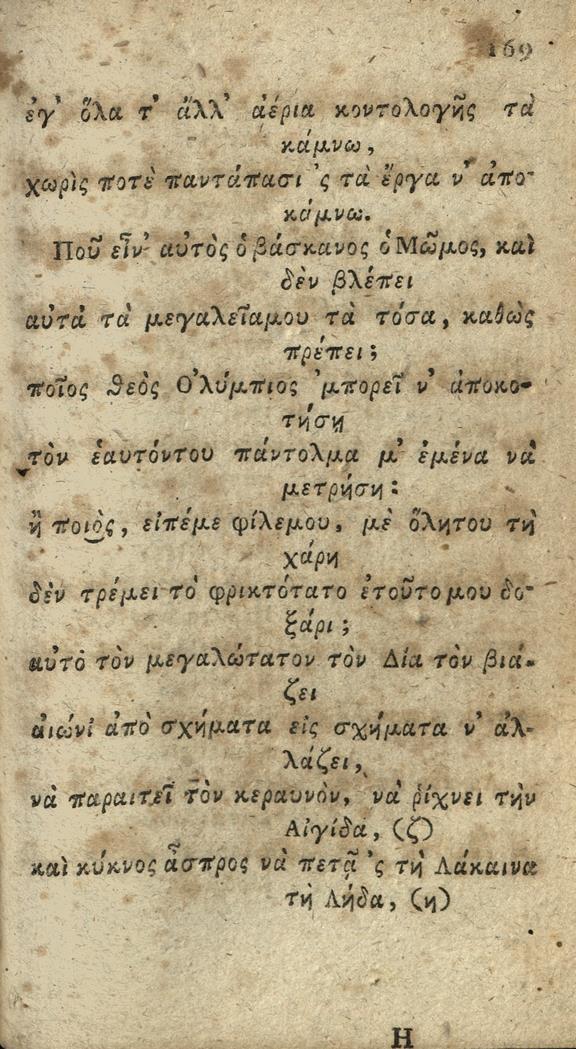 169
ἐγ' ὅλα τ' ἄλλ' ἀέρια κοντολογῆς τὰ
κάμνω,
χωρὶς ποτὲ παντάπασι 'ς τὰ ἔργα ν' ἀπο-
κάμνω.
Ποῦ εἶν' αὐτὸς ὁ βάσκανος ὁ Μῶμος, καὶ
δὲν βλέπει
αὐτὰ τὰ μεγαλεῖαμου τὰ τόσα, καθὼς
πρέπει;
ποῖος θεὸς Ὀλύμπιος 'μπορεῖ ν' ἀποκο-
τήσῃ
τὸν ἑαυτόντου πάντολμα μ' ἐμένα νὰ
μετρήσῃ:
ἢ ποιὸς, εἰπέμε φίλεμου, μὲ ὅλητου τὴ
χάρη
δὲν τρέμει τὸ φρικτότατο ἐτοῦτο μου δο-
ξάρι;
αὐτὸ τὸν μεγαλώτατον τὸν Δία τὸν βιά-
ζει
αἰώνὶ ἀπὸ σχήματα εἰς σχήματα ν' ἀλ-
λάζει,
νὰ παραιτεῖ τὸν κεραυνὸν, νὰ ῥίχνει τὴν
Αἰγίδα, (ζ)
καὶ κύκνος ἄσπρος νὰ πετᾷ 'ς τὴ Λάκαινα
τὴ Λήδα, (η)
Η